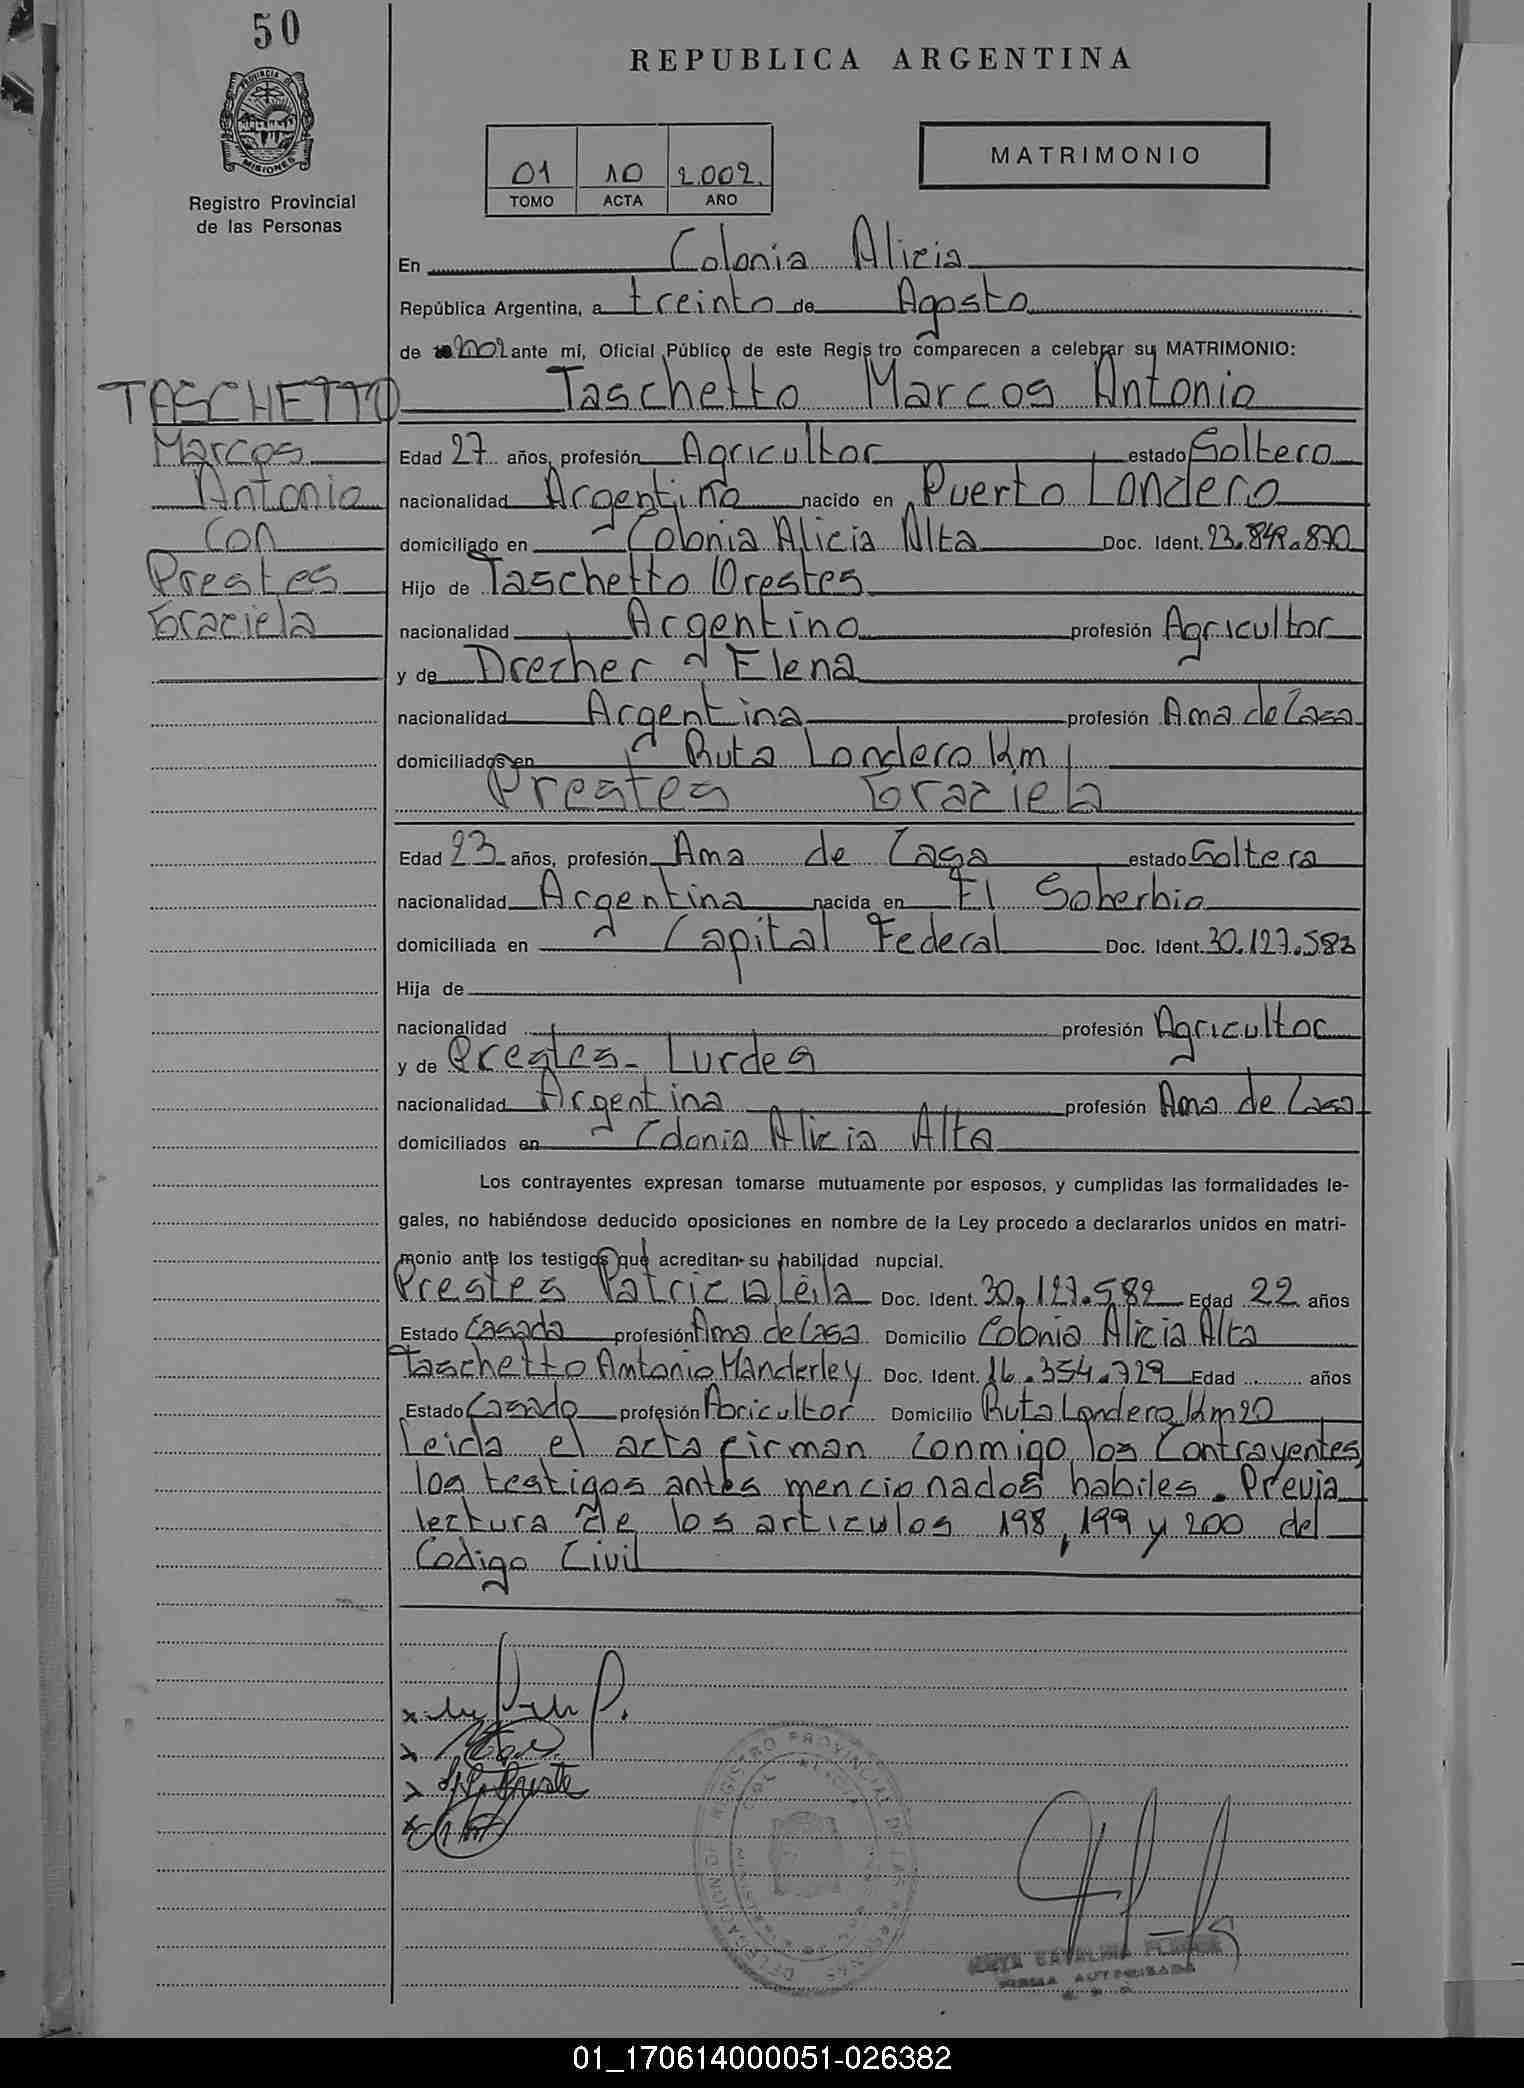 50
REPUBLICA ARGENTINA
PROVINCIA DE
MISIONES
Registro Provincial
de las Personas
01 10 2.002.
TOMO ACTA AÑO
MATRIMONIO
En Colonia Alicia
República Argentina, a treinta de Agosto
de 2002 ante mí, Oficial Público de este Registro comparecen a celebrar su MATRIMONIO:
TASCHETTO
Marcos
Antonio
Con
Prestes
Graciela
Taschetto Marcos Antonio
Edad 27 años, profesión Agricultor estado Soltero
nacionalidad Argentina nacido en Puerto Londero
domiciliado en Colonia Alicia Alta Doc. Ident. 23.849.870
Hijo de Taschetto Orestes
nacionalidad Argentino profesión Agricultor
y de Drecher Elena
nacionalidad Argentina profesión Ama de Casa
domiciliados en Ruta Londero Km
Prestes Graciela
Edad 23 años, profesión Ama de Casa estado Soltera
nacionalidad Argentina nacida en El Soberbio
domiciliada en Capital Federal Doc. Ident. 30.127.583
Hija de
nacionalidad profesión Agricultor
y de Prestes Lurdes
nacionalidad Argentina profesión Ama de Casa
domiciliados en Colonia Alicia Alta
Los contrayentes expresan tomarse mutuamente por esposos, y cumplidas las formalidades le-
gales, no habiéndose deducido oposiciones en nombre de la Ley procedo a declararlos unidos en matri-
monio ante los testigos que acreditan su habilidad nupcial.
Prestes Patricia Leila Doc. Ident. 30.127.582 Edad 22 años
Estado Casada profesión Ama de Casa Domicilio Colonia Alicia Alta
Taschetto Antonio Handerley Doc. Ident. 16.354.729 Edad años
Estado Casado profesión Abricultor Domicilio Ruta Londero Km 20
Leida el acta firman conmigo los Contrayentes,
los testigos antes mencionados habiles. Previa
lectura de los articulos 198, 199 y 200 del
Codigo Civil
DELEGACION DE REGISTRO PROVINCIAL DE LAS PERSONAS
COL. ALICIA
MISIONES
CATALINA
FIRMA AUTORIZADA
01_170614000051-026382